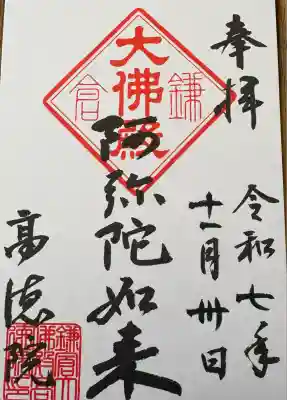 奉拝
令和七年
十一月卅日
大佛殿
鎌倉
阿弥陀如来
高徳院